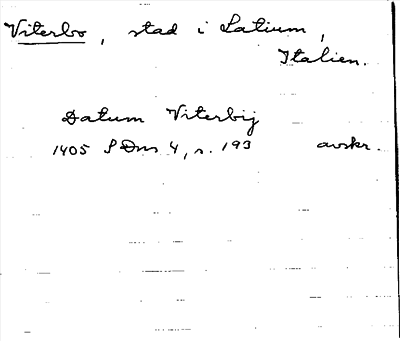 Viterbo, stad i Latium,
Italien.
Datum Viterbij
1405 SDns 4, s. 193 avskr.